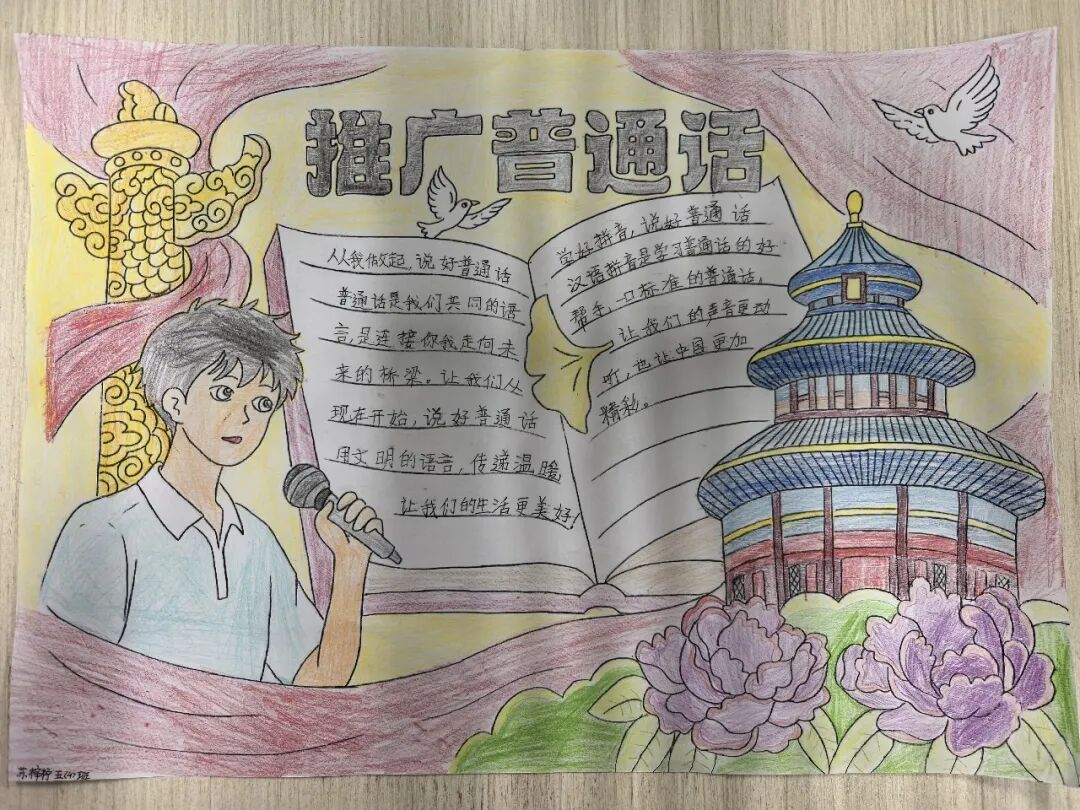 推广普通话
从我做起,说好普通话
普通话是我们共同的语
言,是连接你我走向未
来的桥梁。让我们从
现在开始,说好普通话
用文明的语言,传递温暖
让我们的生活更美好!
学好拼音,说好普通话
汉语拼音是学习普通话的好
帮手,一口标准的普通话,
让我们的声音更动
听,也让中国更加
精彩。
苏梓柠 五(4)班